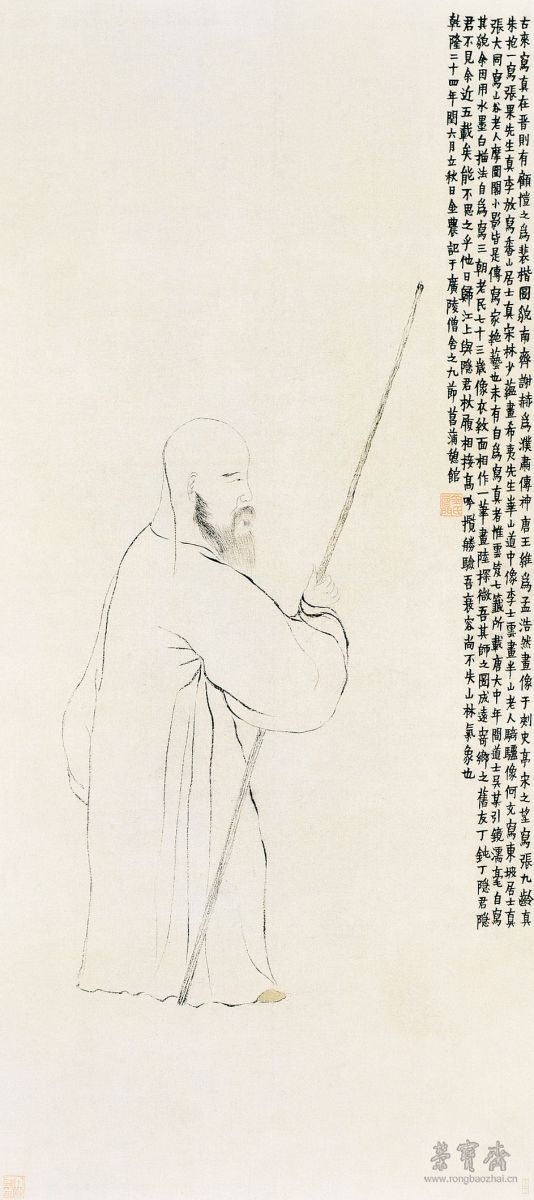 古來寫真在晉則有顧愷之爲裴楷圖貌南齊謝赫爲濮肅傳神唐王維爲孟浩然畫像于刺史亭宋之望寫張九齡真
朱抱一寫張果先生真李放寫香山居士真宋林少蘊畫希夷先生華山道中像李士雲畫半山老人騎驢像何充寫東坡居士真
張大同寫山谷老人摩圍閣小影皆是傳寫家絶藝也未有自爲寫真者惟雲笈七籤所載唐大中年間道士吳某引鏡濡毫自寫
其貌余因用水墨白描法自爲寫三朝老民七十三歲像衣紋面相作一筆畫陸探微吾其師之圖成遠寄鄉之舊友丁鈍丁隱君隱
君不見余近五載矣能不思之乎他日歸江上與隱君杖履相接高吟攬勝驗吾衰容尚不失山林氣象也
乾隆二十四年閏六月立秋日金農記于廣陵僧舍之九節菖蒲憩館
榮寶齋
www.rongbaozhai.cn